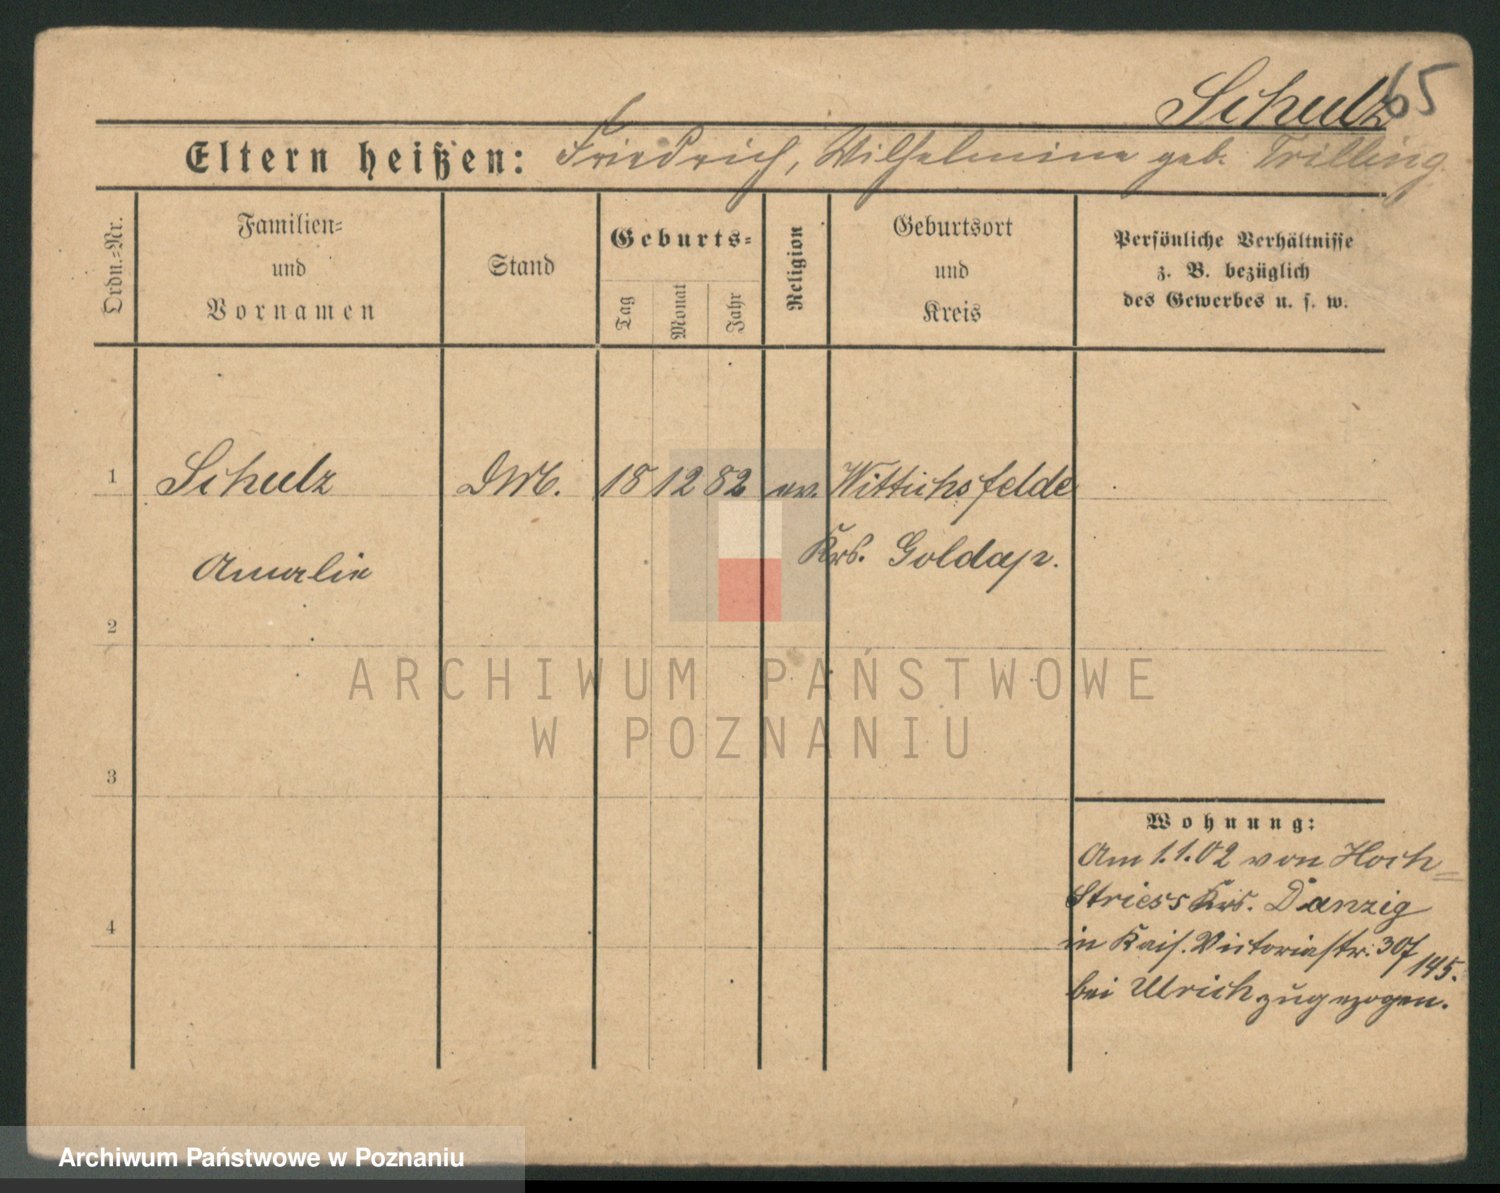 Schulz 65
Eltern heißen: Friedrich, Wilhelmine geb. Trilling
Ordn.-Nr.
Familien-
und
Vornamen
Stand
Geburts-
Tag
Monat
Jahr
Religion
Geburtsort
und
Kreis
Persönliche Verhältnisse
z. B. bezüglich
des Gewerbes u. s. w.
1 Schulz 18 12 82 ev. Wittichsfelde
Amalie Krs. Goldap.
2
3
4
Wohnung:
Am 1.1.02 von Hoch-
Striess Krs. Danzig
in Kais. Victoriastr. 307/145.
bei Ulrich zugezogen.
ARCHIWUM PAŃSTWOWE
W POZNANIU
Archiwum Państwowe w Poznaniu